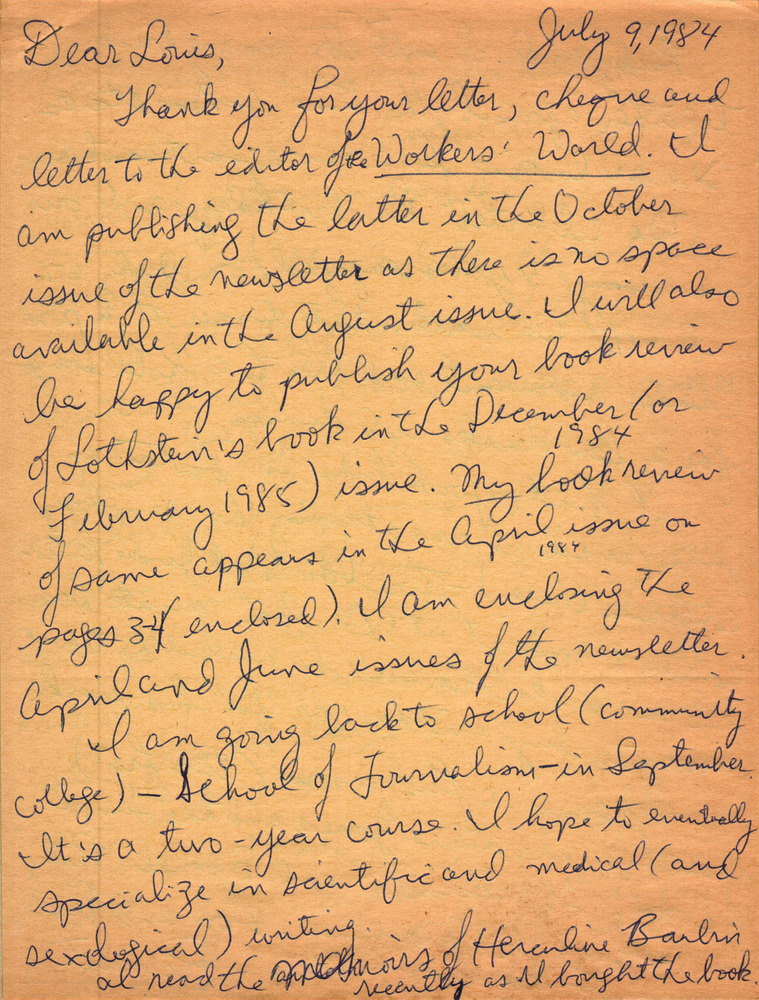 July 9, 1984
Dear Louis,
Thank you for your letter, cheque and
letter to the editor of Workers' World. I
am publishing the latter in the October
issue of the newsletter as there is no space
available in the August issue. I will also
be happy to publish your book review
of Lothstein's book in the December (or
1984
February 1985) issue. My book review
of same appears in the April issue on
1984
pages 3-4 (enclosed). I am enclosing the
April and June issues of the newsletter.
I am going back to school (community
college) – School of Journalism – in September.
It's a two-year course. I hope to eventually
specialize in scientific and medical (and
sexological) writing.
I read the memoirs of Herculine Barbin
recently as I bought the book.